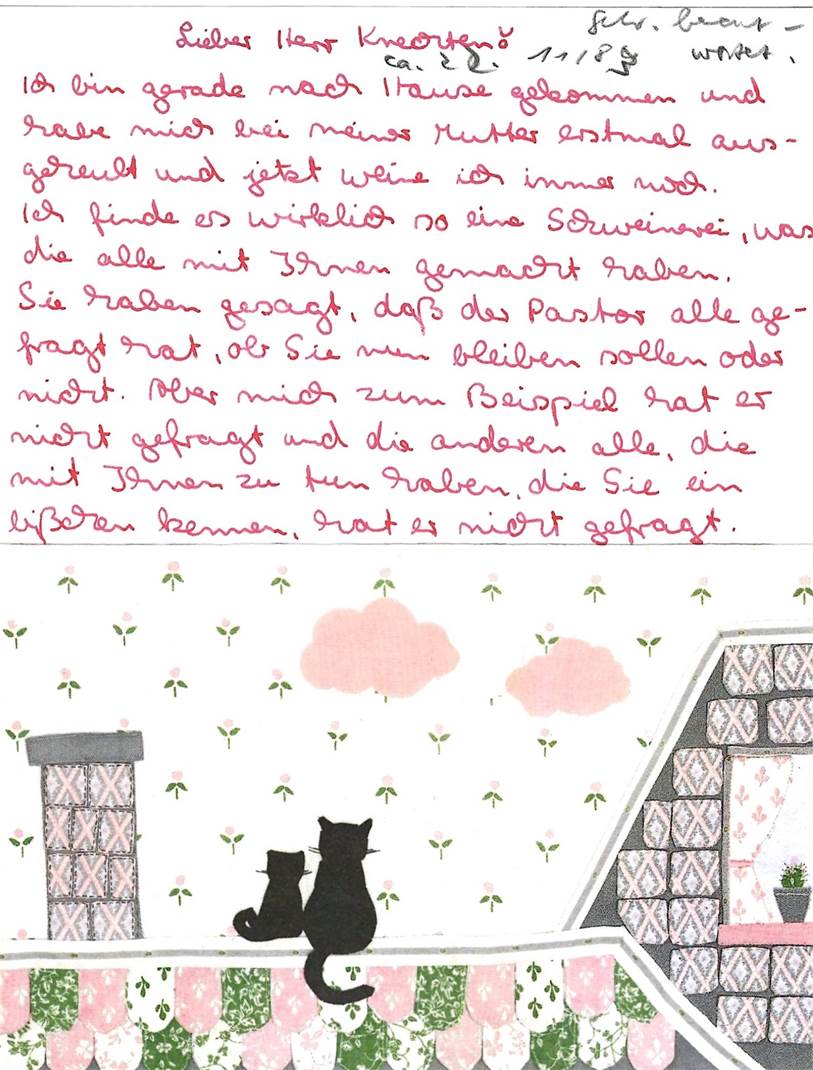 Lieber Herr Knechten!
schr. beant-
wortet.
ca. 22. 11/83
Ich bin gerade nach Hause gekommen und
habe mich bei meiner Mutter erstmal aus-
geheult und jetzt weine ich immer noch.
Ich finde es wirklich so eine Schweinerei, was
die alle mit Ihnen gemacht haben.
Sie haben gesagt, daß der Pastor alle ge-
fragt hat, ob Sie nun bleiben sollen oder
nicht. Aber mich zum Beispiel hat er
nicht gefragt und die anderen alle, die
mit Ihnen zu tun haben, die Sie ein
bißchen kennen, hat er nicht gefragt.